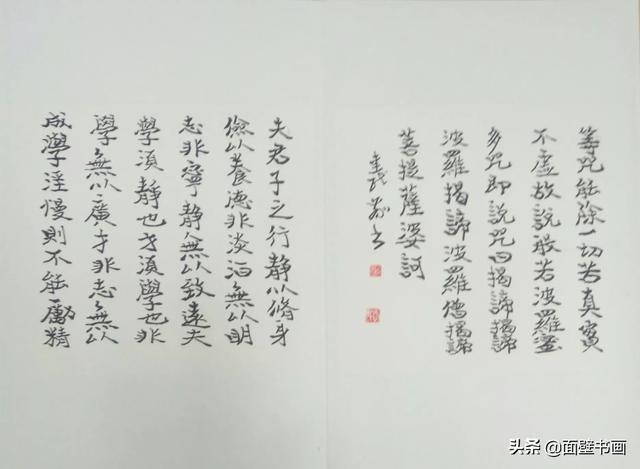 等咒能除一切苦真實
不虛故說般若波羅蜜
多咒即說咒曰揭諦揭諦
波羅揭諦波羅僧揭諦
菩提薩婆訶
夫君子之行靜以脩身
儉以養德非淡泊無以明
志非寧靜無以致遠夫
學須靜也才須學也非
學無以廣才非志無以
成學淫慢則不能勵精
头条 @面壁书画